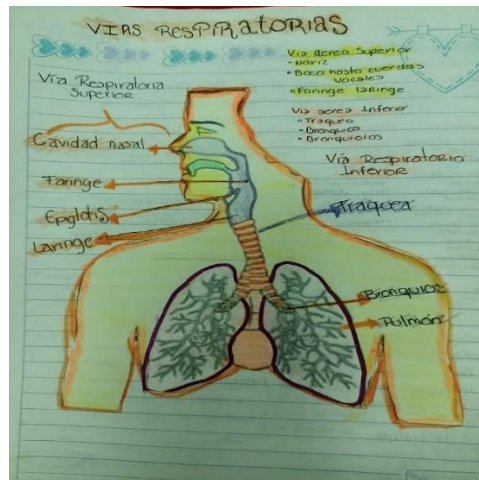 VIAS RESPIRATORIAS
Via aerea Superior
• Nariz
• Boca hasta cuerdas
vocales
• Faringe laringe
Via aerea Inferior
• Traquea
• Bronquios
• Bronquiolos
Vía Respiratoria
Superior
Vía Respiratorio
Inferior
Cavidad nasal
Faringe
Epiglotis
Laringe
Traquea
Bronquios
Pulmón